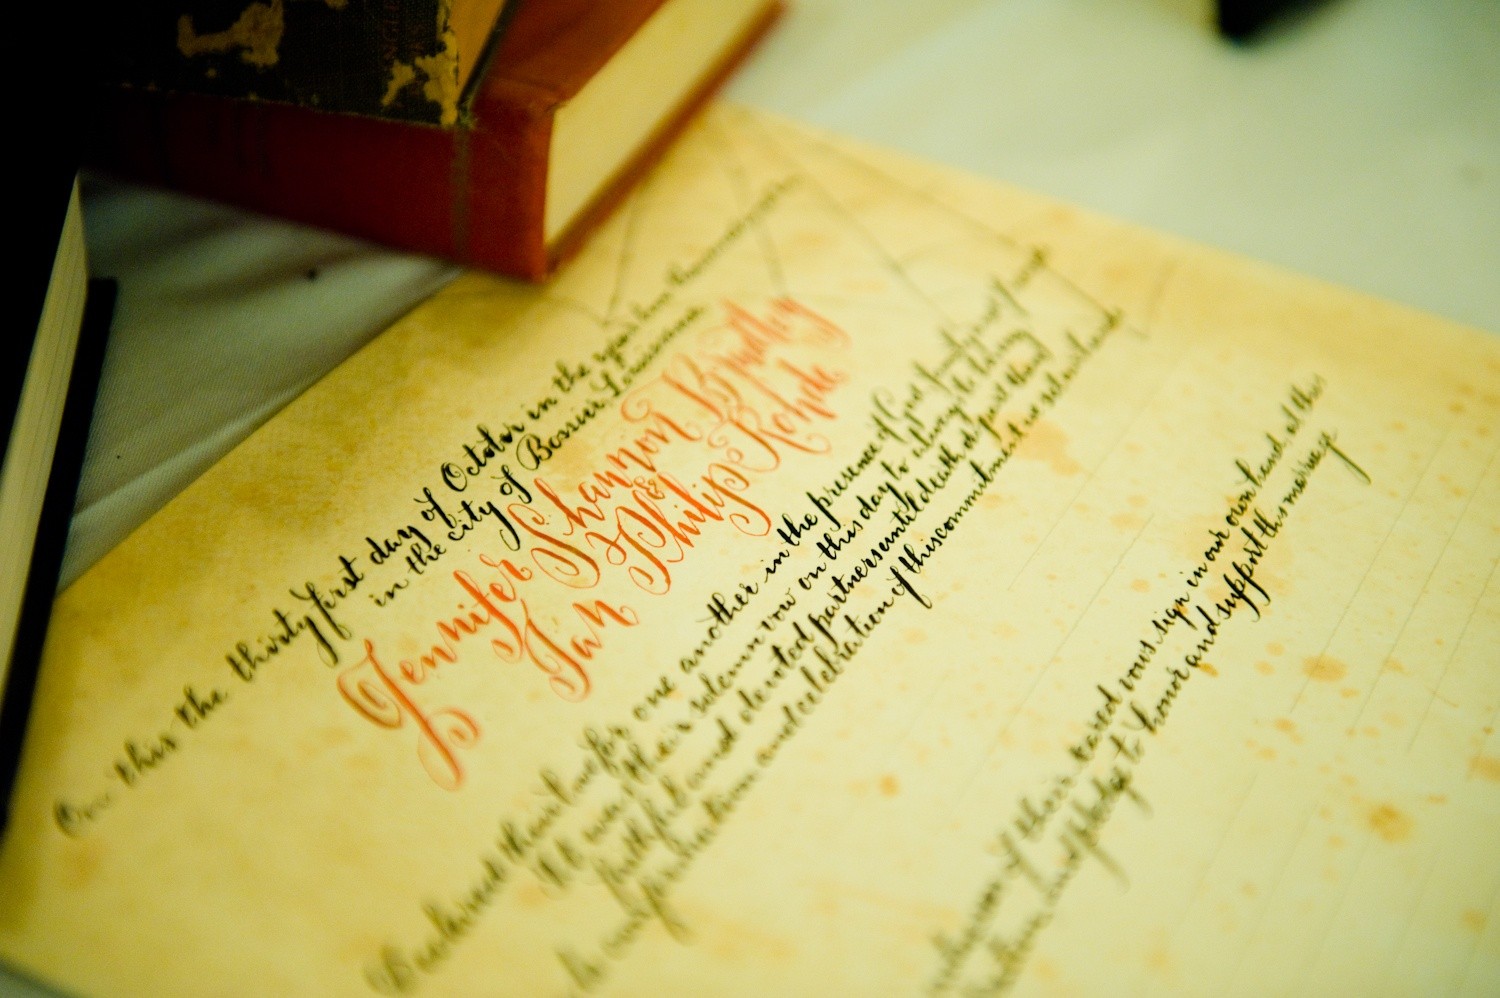 On this the thirty first day of October in the year two thousand
in the city of Bossier Louisiana
Jennifer Shannon Brindley
&
Ian Philip Rohde
Declared their love for one another in the presence of
It was their solemn vow on this day to
faithful and devoted partners until death do part them
and celebration of this commitment we set our hands
of their sacred vows sign in our own hand, at this
and pledge to honor and support this marriage